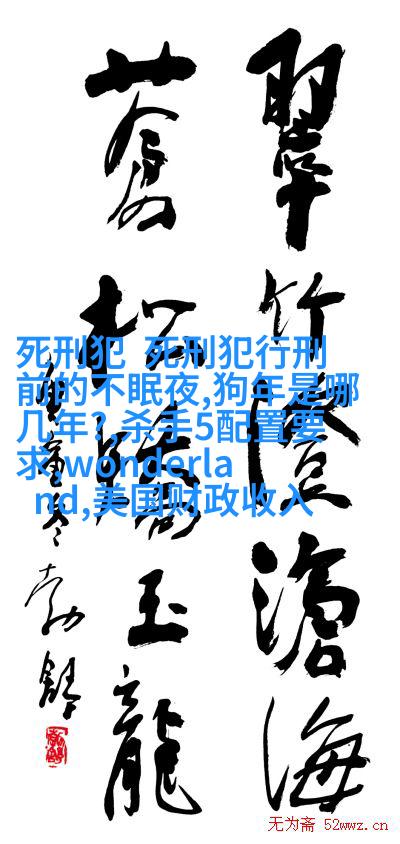 翠竹澄滄海
蒼松玉龍
勃舒
死刑犯 死刑犯行刑
前的不眠夜,狗年是哪
几年? 杀手5配置要
求,wonderla
nd,美国财政收入
无为斋 52wwz.cn